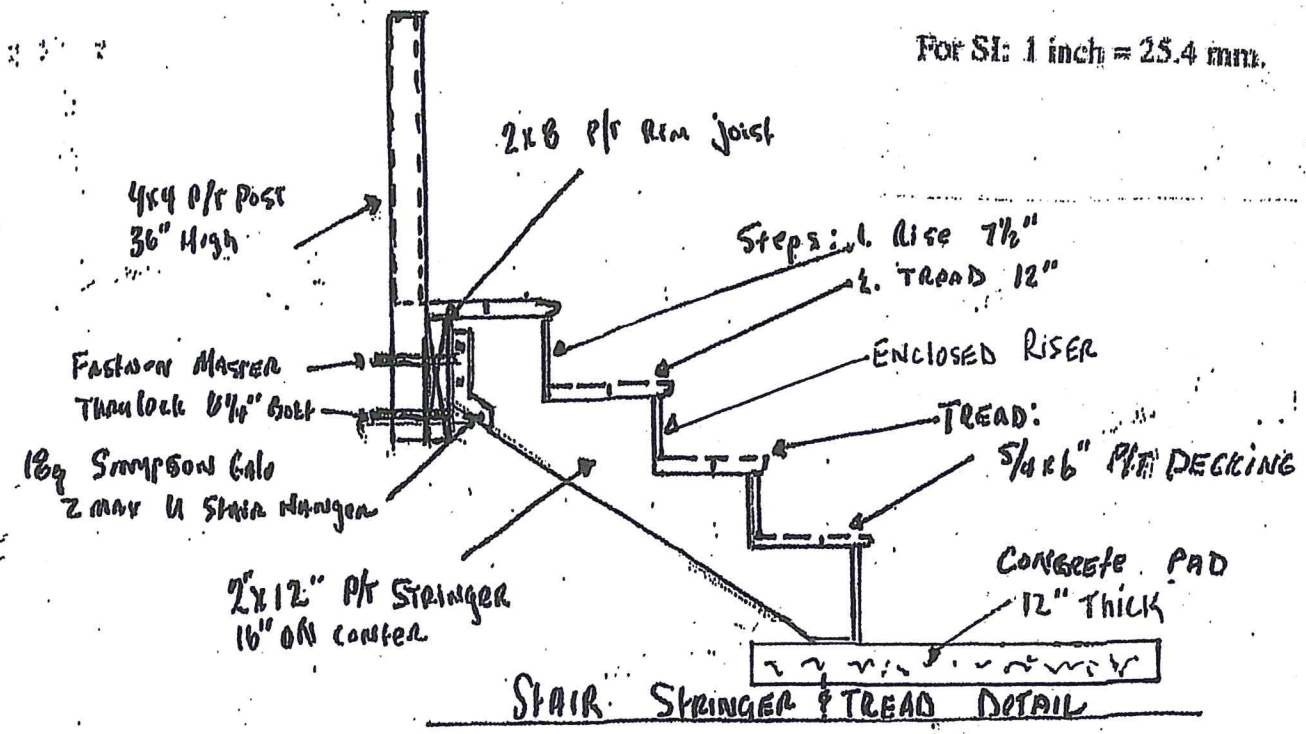 For SI: 1 inch = 25.4 mm.
2x8 P/T Rim Joist
4x4 P/T Post
36" High
Steps: 1. Rise 7½"
2. TREAD 12"
ENCLOSED RISER
FASTNON MASTER
Thrulock Bolt
TREAD:
5/4x6" P/T DECKING
18g SIMPSON Galv
Z MAX U Stair Hanger
CONCRETE PAD
12" Thick
2"x12" P/T STRINGER
16" ON CONTER
STAIR STRINGER & TREAD DETAIL